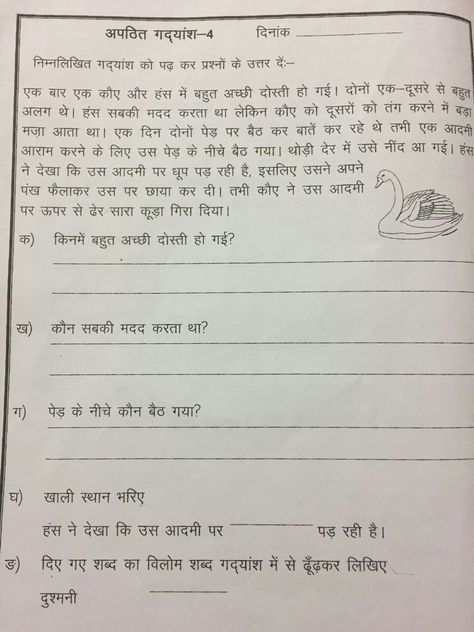 अपठित गद्यांश–4 दिनांक
निम्नलिखित गद्यांश को पढ़ कर प्रश्नों के उत्तर दें:–
एक बार एक कौए और हंस में बहुत अच्छी दोस्ती हो गई। दोनों एक–दूसरे से बहुत
अलग थे। हंस सबकी मदद करता था लेकिन कौए को दूसरों को तंग करने में बड़ा
मज़ा आता था। एक दिन दोनों पेड़ पर बैठ कर बातें कर रहे थे तभी एक आदमी
आराम करने के लिए उस पेड़ के नीचे बैठ गया। थोड़ी देर में उसे नींद आ गई। हंस
ने देखा कि उस आदमी पर धूप पड़ रही है, इसलिए उसने अपने
पंख फैलाकर उस पर छाया कर दी। तभी कौए ने उस आदमी
पर ऊपर से ढेर सारा कूड़ा गिरा दिया।
क) किनमें बहुत अच्छी दोस्ती हो गई?
ख) कौन सबकी मदद करता था?
ग) पेड़ के नीचे कौन बैठ गया?
घ) खाली स्थान भरिए
हंस ने देखा कि उस आदमी पर पड़ रही है।
ङ) दिए गए शब्द का विलोम शब्द गद्यांश में से ढूँढ़कर लिखिए
दुश्मनी